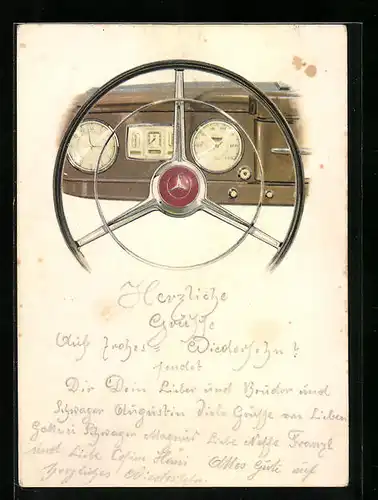 Herzliche
Grüsse
Auf frohes = Wiedersehn !
sendet
Dir Dein Lieber und Bruder und
Schwager Augustin Viele Grüsse von Lieben
Schwager Liebe Neffe Franzl
und Liebe Hansi Alles Gute auf
herzliches Wiedersehn.